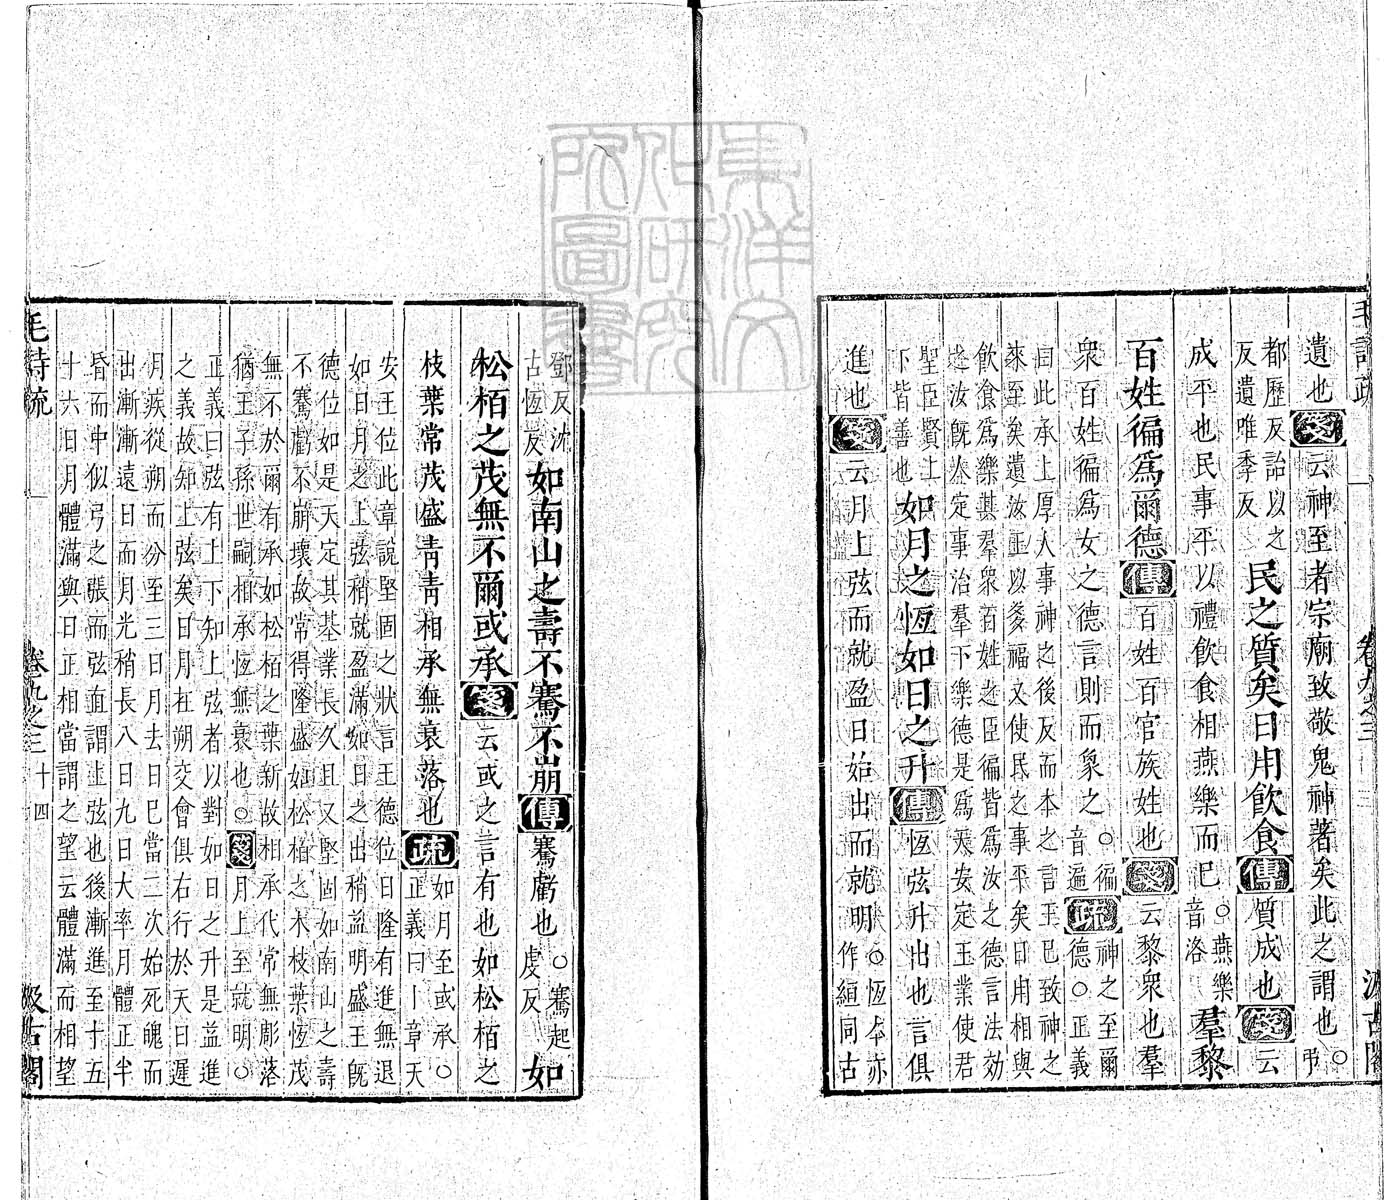 遺也箋云神至者宗廟致敬鬼神著矣此之謂也○弔
都歷反詒以之
反遺唯季反
民之質矣日用飲食傳質成也箋云
成平也民事平以禮飲食相燕樂而已○燕樂
音洛
羣黎
百姓徧爲爾德傳百姓百官族姓也箋云黎衆也羣
衆百姓徧爲女之德言則而象之○徧
音遍
疏神之至爾
德○正義
曰此承上厚人事神之後反而本之言王已致神之
來至矣遺汝王以多福又使民之事平矣日用相與
飲食爲樂其羣衆百姓之臣徧皆爲汝之德言法効
逮汝既人定事治羣下樂德是爲天安定王業使君
聖臣賢上
下皆善也
如月之恆如日之升傳恆弦升出也言俱
進也箋云月上弦而就盈日始出而就明○恆本亦
作緪同古
鄧反沈
古恆反
如南山之壽不騫不崩傳騫虧也○騫起
虔反
如
松栢之茂無不爾或承箋云或之言有也如松栢之
枝葉常茂盛青青相承無衰落也疏如月至或承○
正義曰上章天
安王位此章說堅固之狀言王德位日隆有進無退
如日月之上弦稍就盈滿如日之出稍益明盛王既
德位如是天定其基業長久且又堅固如南山之壽
不騫虧不崩壞故常得隆盛如松栢之木枝葉恆茂
無不於爾有承如松栢之葉新故相承代常無彫落
猶王子孫世嗣相承恆無衰也○箋月上至就明○
正義曰弦有上下知上弦者以對如日之升是益進
之義故知上弦矣日月在朔交會俱右行於天日遲
月疾從朔而分至三日月去日已當二次始死魄而
出漸漸遠日而月光稍長八日九日大率月體正半
昏而中似弓之張而弦直謂上弦也後漸進至十五
十六日月體滿與日正相當謂之望云體滿而相望
毛詩疏
卷九之三
十四
汲古閣